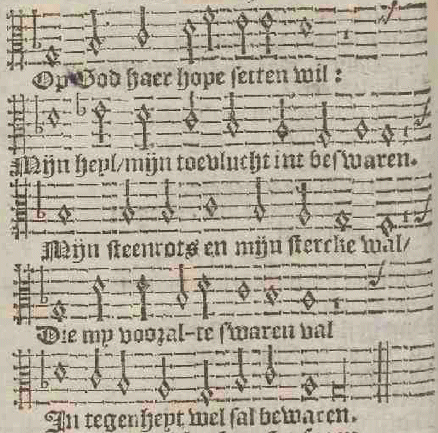 Op God haer hope setten wil:
Mijn heyl/mijn toevlucht int beswaren.
Mijn steenrots en mijn stercke wal/
Die my voor al-te swaren val
In tegenheyt wel sal bewaren.